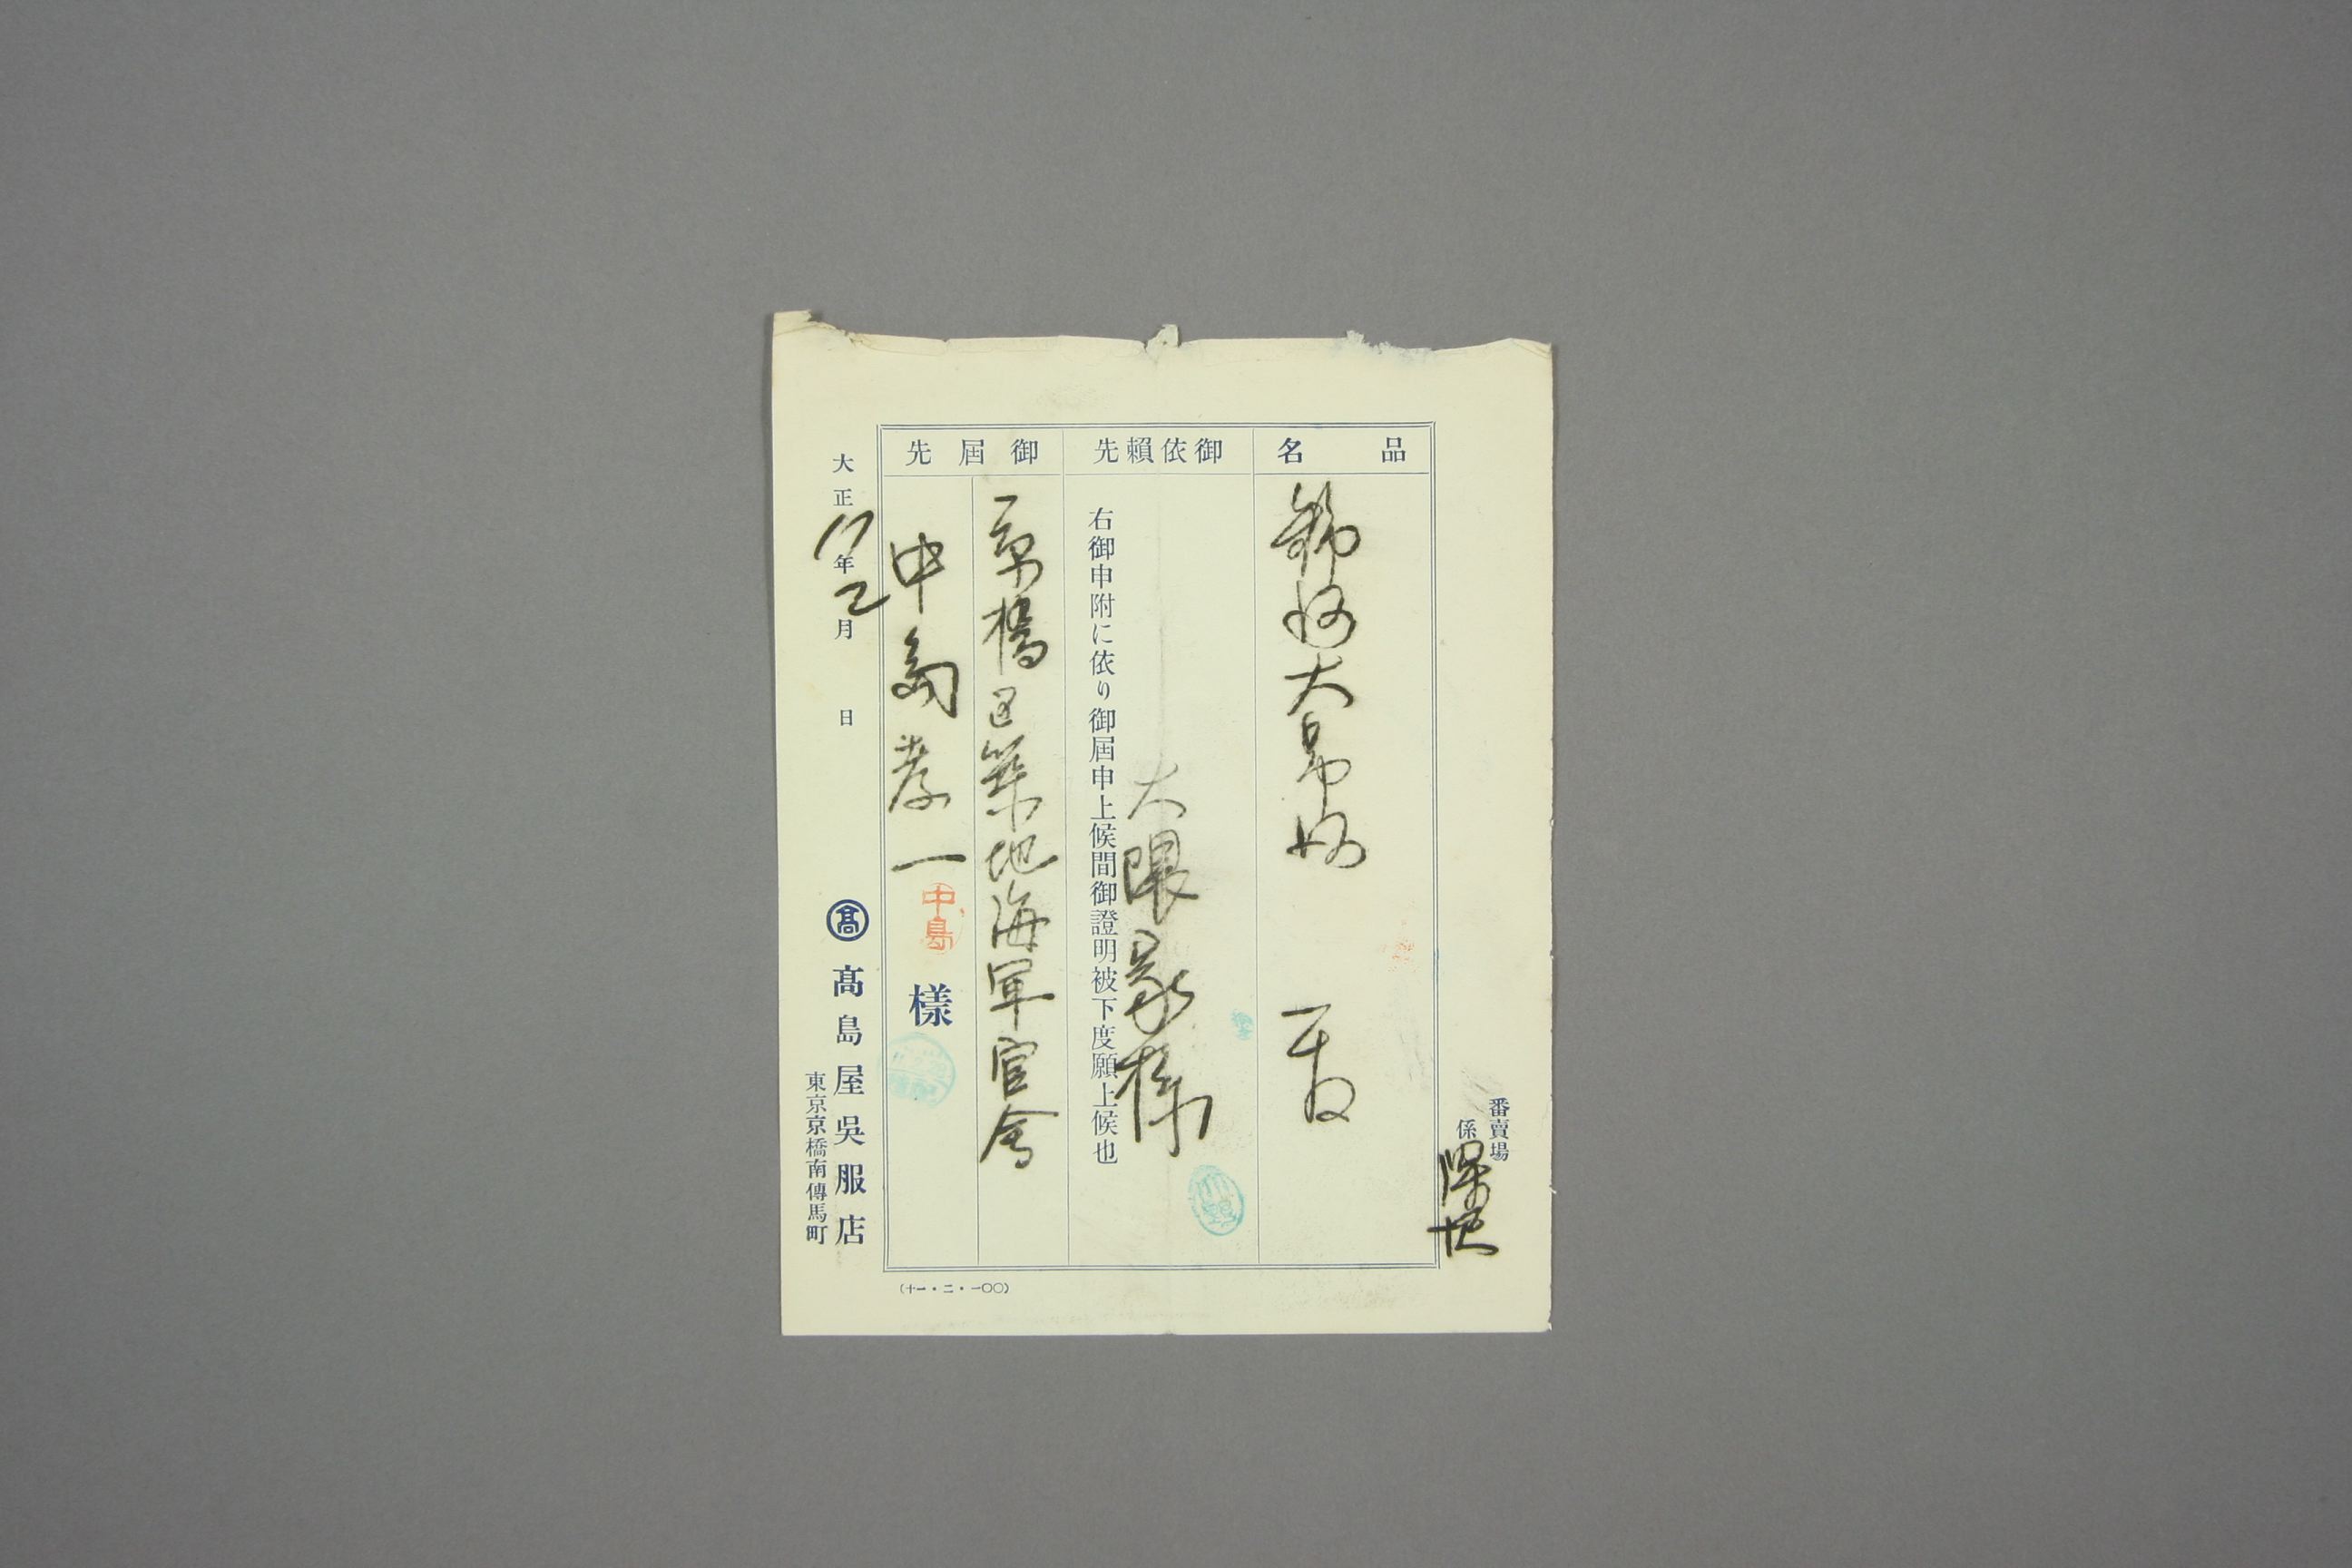 番賣場
係
品名
大
御依賴先
大隈家様
右御申附に依り御屆申上候間御證明被下度願上候也
御屆先
京橋区築地海軍官舎
中島孝一 中島 樣
大正11年2月 日
髙 髙島屋吳服店
東京京橋南傳馬町
(十一・二・一〇〇)